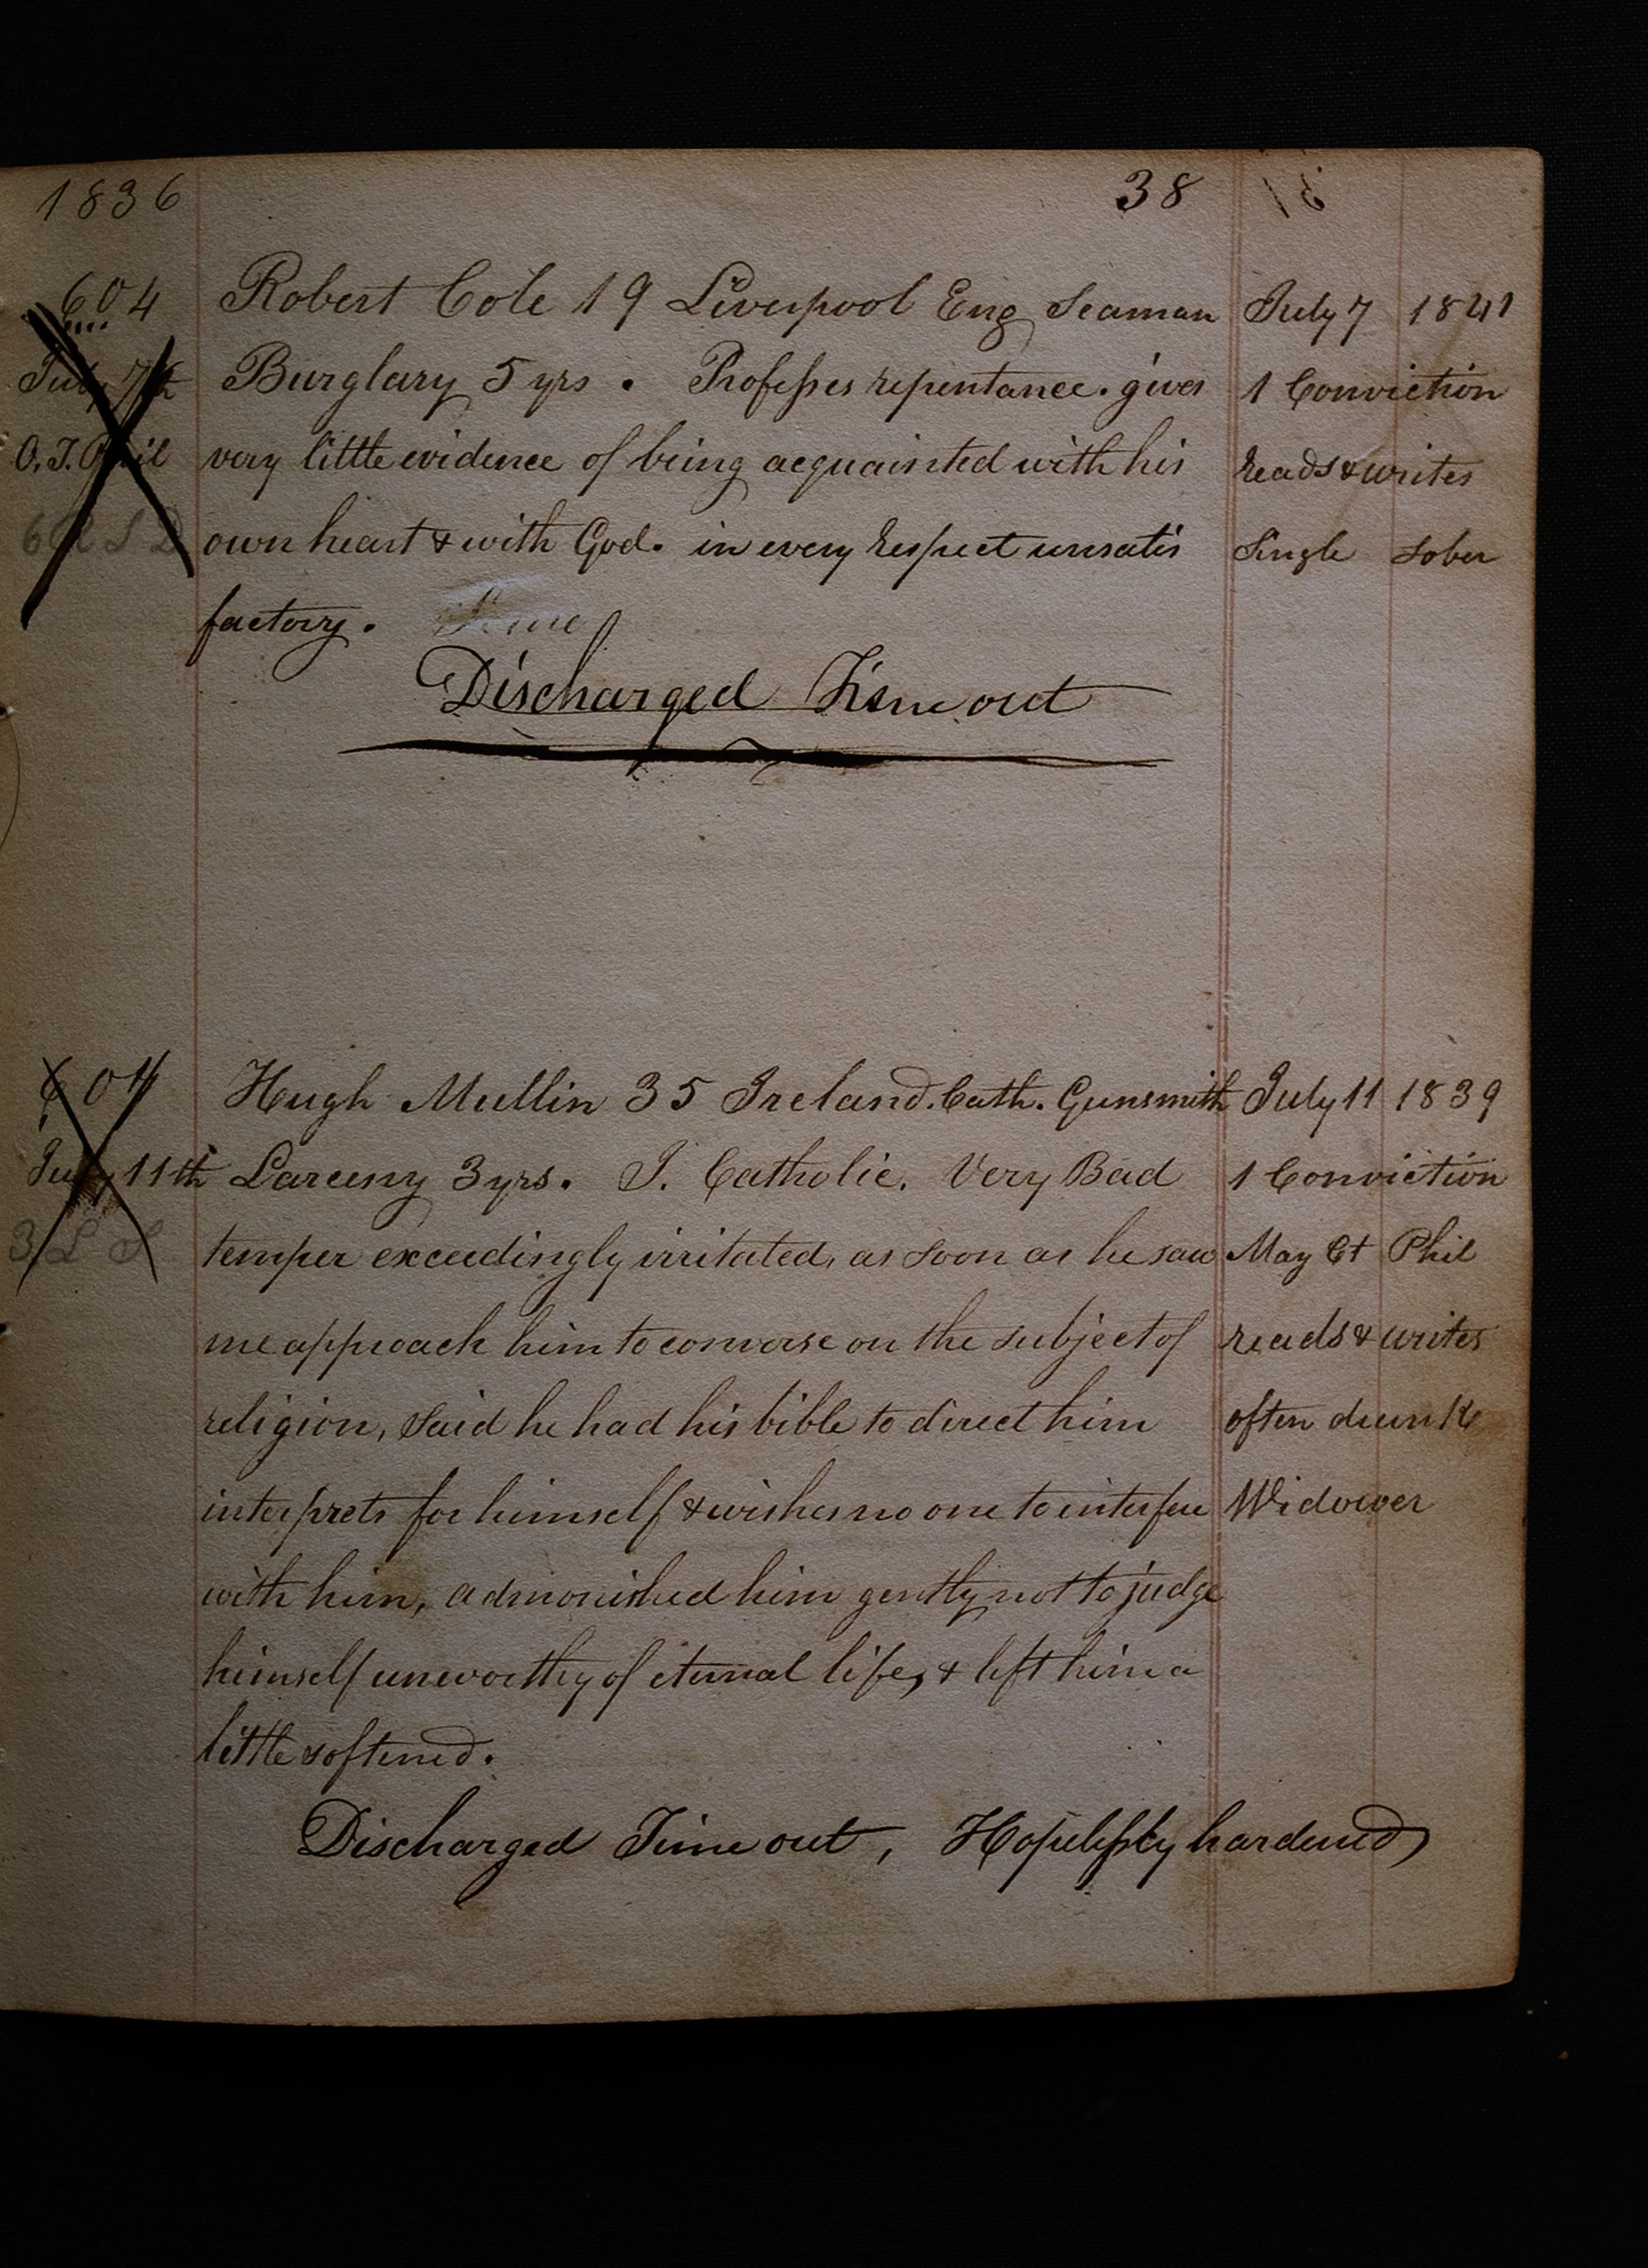 1836 38
604 Robert Cole 19 Liverpool Eng Seaman July 7 1841
July 7th Burglary 5 yrs. Professes repentance. gives 1 Conviction
O.T. Phil very little evidence of being acquainted with his reads & writes
own heart & with God. in every respect unsatis Single Sober
factory. Time
Discharged Time out
604 Hugh Mullin 35 Ireland. Cath. Gunsmith July 11 1839
July 11th Larceny 3 yrs. I. Catholic. Very Bad 1 Conviction
3 L S temper exceedingly irritated, as soon as he saw May Ct Phil
me approach him to converse on the subject of reads & writes
religion, said he had his bible to direct him often drunk
interprets for himself & wishes no one to interfere Widower
with him, admonished him gently not to judge
himself unworthy of eternal life, & left him a
little softened.
Discharged Time out, Hopelessly hardened